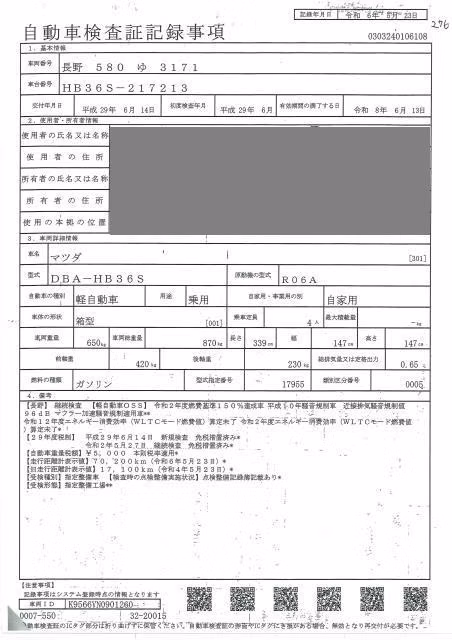 記録年月日 令和 6年 5月 23日
276
自動車検査証記録事項
0303240106108
1. 基本情報
車両番号 長野 580 ゆ 3171
車台番号 HB36S-217213
交付年月日 平成 29年 6月 14日 初度検査年月 平成 29年 6月 有効期間の満了する日 令和 8年 6月 13日
2. 使用者・所有者情報
使用者の氏名又は名称
使用者の住所
所有者の氏名又は名称
所有者の住所
使用の本拠の位置
3. 車両詳細情報
車名 マツダ [301]
型式 DBA-HB36S 原動機の型式 R06A
自動車の種別 軽自動車 用途 乗用 自家用・事業用の別 自家用
車体の形状 箱型 [001] 乗車定員 4人 最大積載量 -kg
車両重量 650kg 車両総重量 870kg 長さ 339cm 幅 147cm 高さ 147cm
前軸重 420kg 後軸重 230kg 総排気量又は定格出力 0.65
燃料の種類 ガソリン 型式指定番号 17955 類別区分番号 0005
4. 備考
[長野] 継続検査 【軽自動車OSS】 令和2年度燃費基準150%達成車 平成10年騒音規制車 近接排気騒音規制値
96dB マフラー加速騒音規制適用車**
令和12年度エネルギー消費効率(WLTCモード燃費値)算定未了 令和2年度エネルギー消費効率(WLTCモード燃費値
)算定未了*
[29年度税制] 平成29年6月14日 新規検査 免税措置済み*
令和2年5月27日 継続検査 免税措置済み*
[自動車重量税額] ¥5,000 本則税率適用*
[走行距離計表示値] 70,200km(令和6年5月23日)*
[旧走行距離計表示値] 17,100km(令和4年5月23日)*
[受検種別] 指定整備車 [検査時の点検整備実施状況] 点検整備記録簿記載あり*
[受検形態] 指定整備工場**
【注意事項】
記録事項はシステム登録時点の情報となります
車両ID K9566YN0901260
0007-550 32-20015
自動車検査証のICタグ部分は折り曲げずに保管ください。自動車検査証の券面やICタグにき損がある場合、無効となり再交付が必要です。